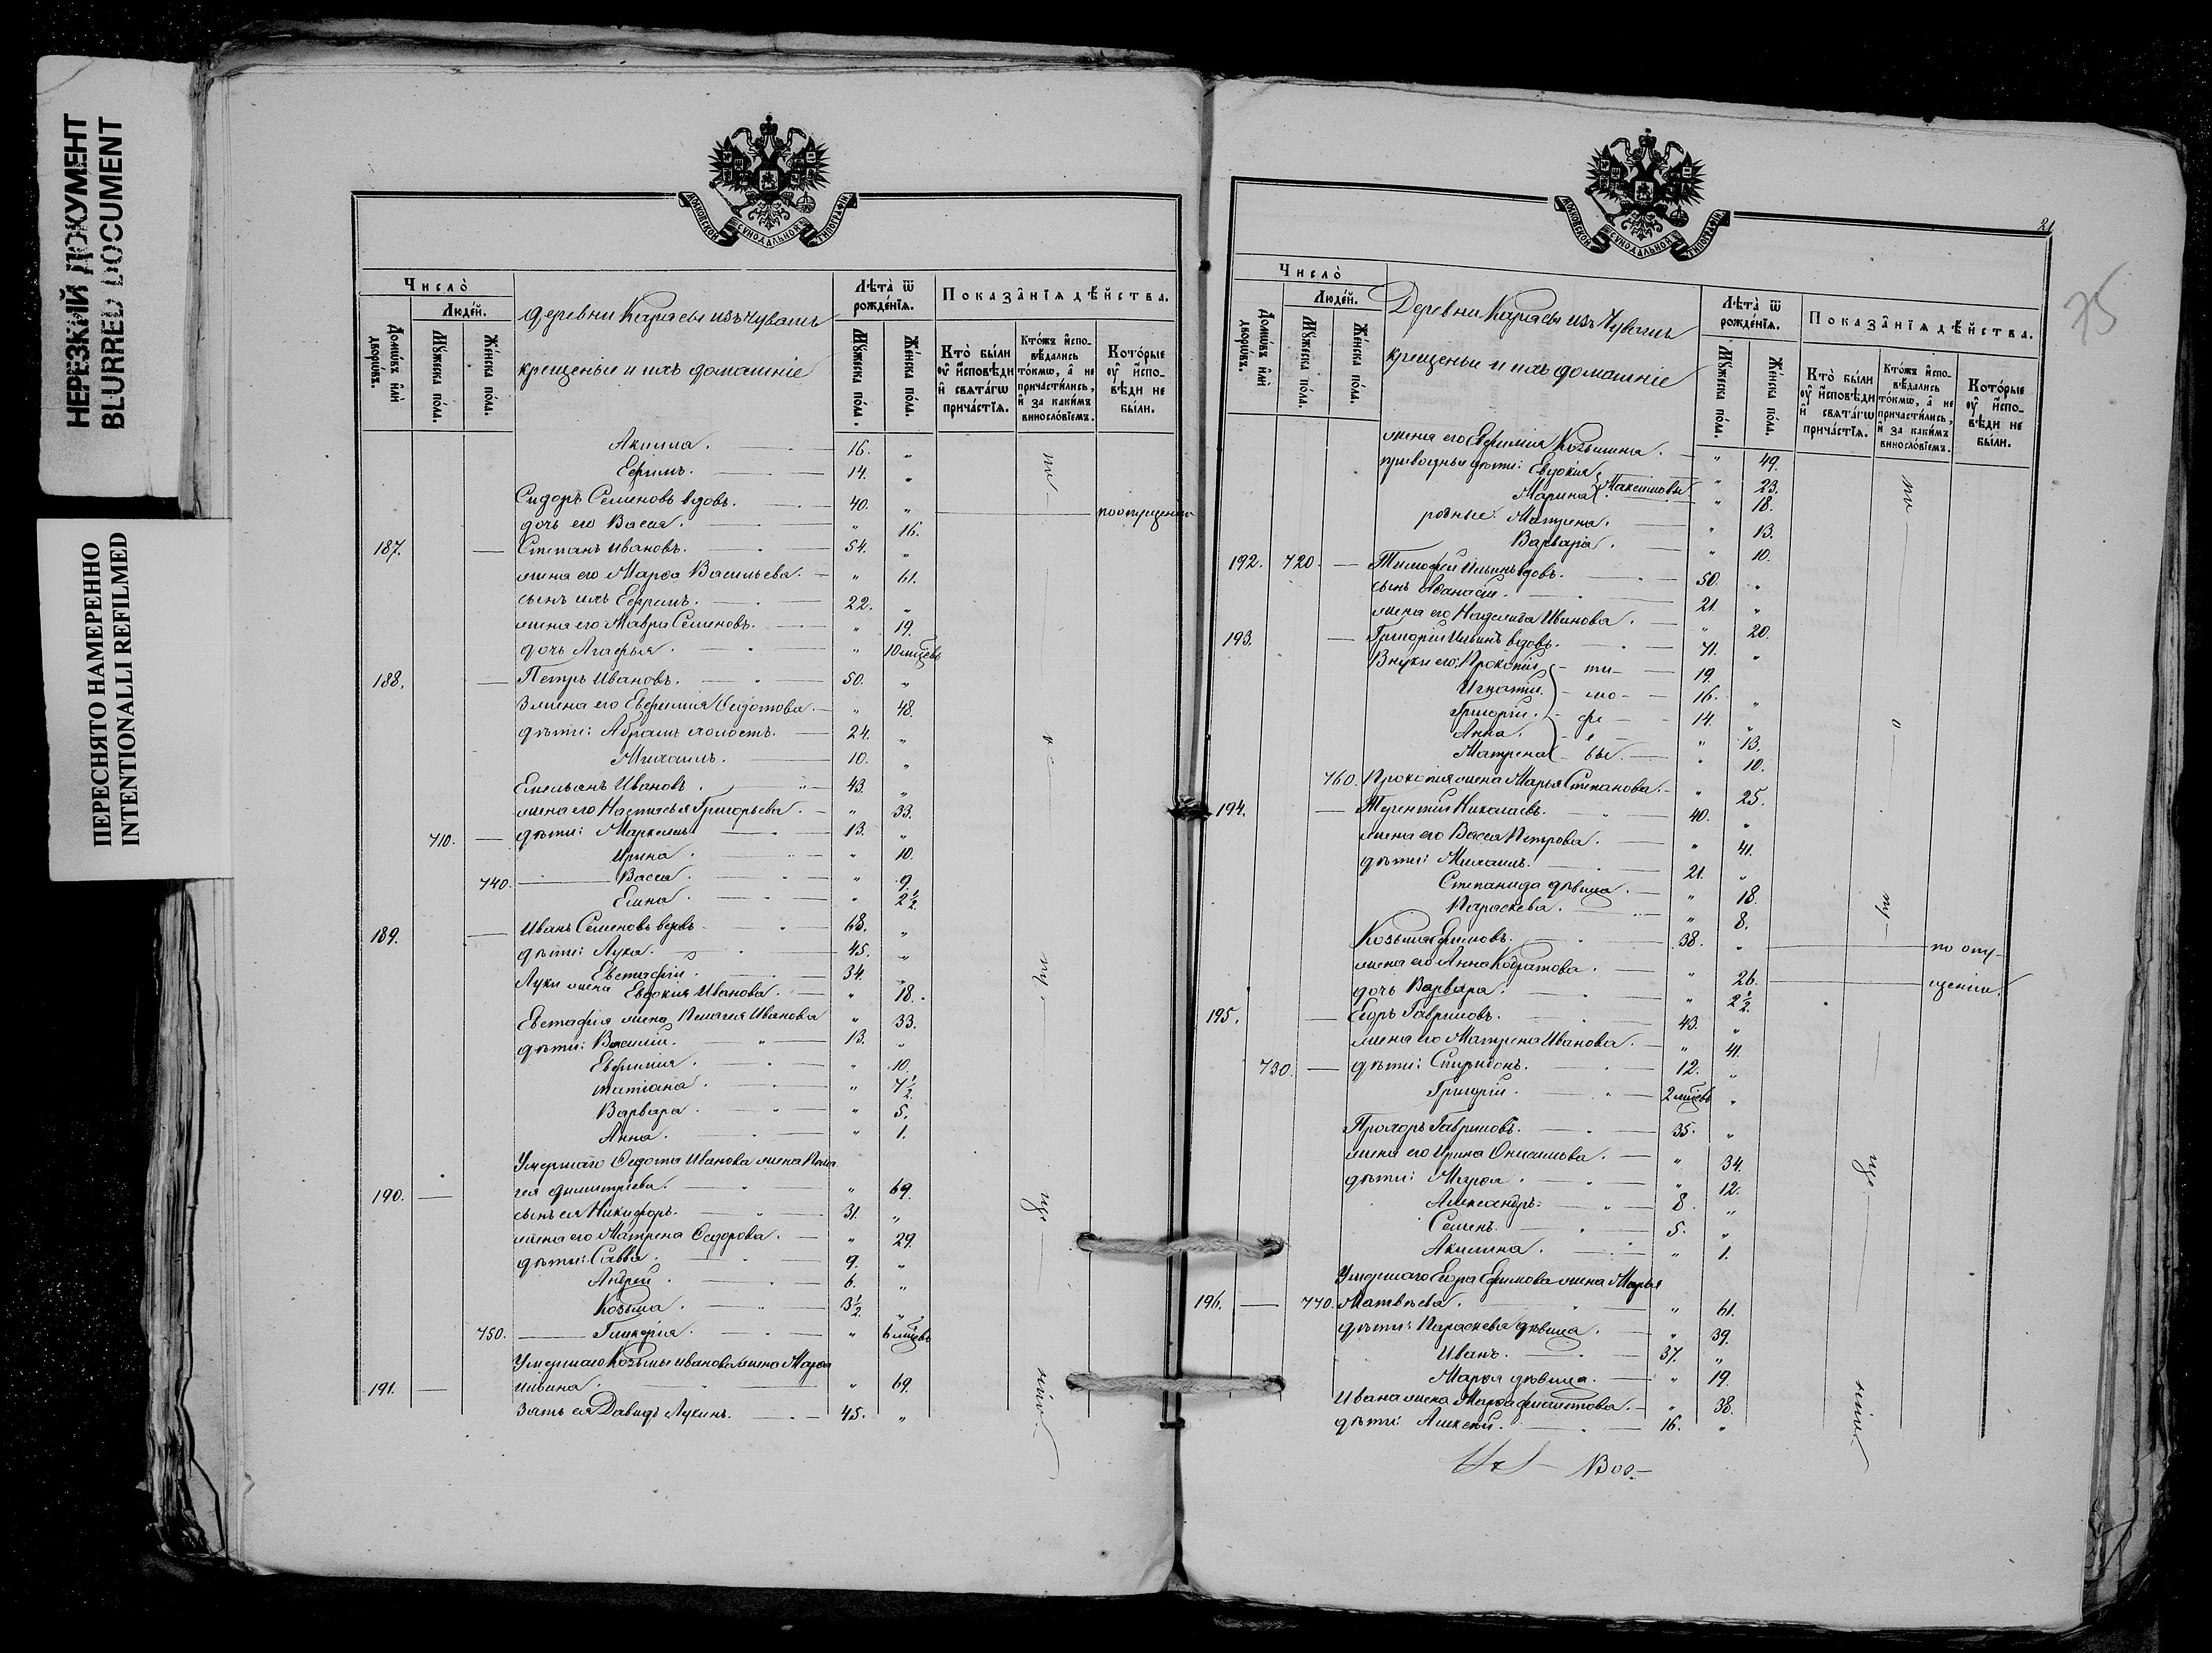 НЕРЕЗКИЙ ДОКУМЕНТ
BLURRED DOCUMENT
ПЕРЕСНЯТО НАМЕРЕННО
INTENTIONALLI REFILMED
МОСКОВСКОЙ СѴНОДАЛЬНОЙ ТИПОГРАФІИ
Число̀
Люде́й.
Домѡ́въ и҆лѝ дворѡ́въ.
Мꙋ́жеска по́ла.
Же́нска по́ла.
Деревни Карясы изъ Чувашъ
крещеные и ихъ домашніе
Лѣта̀ ѿ рожде́нїѧ.
Мꙋ́жеска по́ла.
Же́нска по́ла.
Показа̑нїѧ дѣ́йства.
Кто̀ бы́ли ᲂу҆ и҆́сповѣди и҆ свѧта́гѡ прича́стїѧ.
Кто́жъ и҆спо-вѣ́дались то́кмѡ, а҆ не причасти́лись, и҆ за каки́мъ виносло́вїемъ.
Кото́рые ᲂу҆ и҆́спо-вѣди не бы́ли.
Акима. 16. "
Ефимъ. 14. "
Сидоръ Семеновъ вдовъ. 40. "
дочь его Васса. " 16. по опущенію
187. Степанъ Ивановъ. 54. "
жена его Марѳа Васильева. " 61.
сынъ ихъ Ефремъ. 22. "
жена его Мавра Семенова. " 19.
дочь Агафья. " 10 мѣсяцевъ
188. Петръ Ивановъ. 50. "
жена его Евфимія Ѳедотова. " 48.
дѣти: Абрамъ холостъ. 24. "
Михаилъ. 10. "
Емельянъ Ивановъ. 43. "
жена его Настасья Григорьева " 33.
710. дѣти: Маркеллъ 13. "
Ирина. " 10.
740. Васса. " 9.
Елена. " 2 1/2.
189. Иванъ Семеновъ вдовъ. 68. "
дѣти: Лука. 45. "
Евстафій. 34. "
Луки жена Евдокія Иванова. " 18.
Евстафія жена Пелагея Иванова " 33.
дѣти: Василій. 13. "
Евфимія. " 10.
Татіана. " 7 1/2.
Варвара. " 5.
Анна. " 1.
Умершаго Ѳедота Иванова жена Пела
190. гея Димитріева. " 69.
сынъ ея Никифоръ. 31. "
жена его Матрена Ѳедорова. " 29.
дѣти: Савва. 9. "
Андрей. 6. "
Козьма. 3 1/2. "
750. Гликерія. " 6 мѣсяцевъ
Умершаго Козьмы Иванова жена Марѳа
191. Ильина. " 69.
Зять ея Давидъ Лукинъ. 45. "
21
75
МОСКОВСКОЙ СѴНОДАЛЬНОЙ ТИПОГРАФІИ
Число̀
Люде́й.
Домѡ́въ и҆лѝ дворѡ́въ.
Мꙋ́жеска по́ла.
Же́нска по́ла.
Деревни Карясы изъ Чувашъ
крещеные и ихъ домашніе
Лѣта̀ ѿ рожде́нїѧ.
Мꙋ́жеска по́ла.
Же́нска по́ла.
Показа̑нїѧ дѣ́йства.
Кто̀ бы́ли ᲂу҆ и҆́сповѣди и҆ свѧта́гѡ прича́стїѧ.
Кто́жъ и҆спо-вѣ́дались то́кмѡ, а҆ не причасти́лись, и҆ за каки́мъ виносло́вїемъ.
Кото́рые ᲂу҆ и҆́спо-вѣди не бы́ли.
жена его Евфимія Козьмина. " 49.
приводныя дѣти: Евдокія " 23.
Марина } Максимовы " 18.
родные: Матрена. " 13.
Варвара. " 10.
192. 720. Тимофей Ильинъ вдовъ. 50. "
сынъ Аѳанасій. 21. "
жена его Надежда Иванова. " 20.
193. Григорій Ильинъ вдовъ. 71. "
Внуки его: Прокопій - ти - 19.
Игнатій. - мо - 16. "
Григорій. - фе - 14. "
Анна. - е - " 13.
Матрена - вы. " 10.
760. Прокопія жена Марья Степанова. " 25.
194. Терентій Николаевъ. 40. "
жена его Васса Петрова. " 41.
дѣти: Михаилъ. 21. "
Степанида дѣвица. " 18.
Параскева. " 8.
Козьма Ефимовъ. 38. " по опу-
жена его Анна Кодратова. " 26.
дочь Варвара. " 2 1/2. щенію.
195. Егоръ Гавриловъ. 43. "
жена его Матрена Иванова. " 41.
730. дѣти: Спиридонъ. 12. "
Григорій. 2 мѣсяцевъ "
Прохоръ Гавриловъ. 35. "
жена его Ирина Онисимова. " 34.
дѣти: Марѳа. " 12.
Александръ. 8. "
Семенъ. 5. "
Акилина. " 1.
Умершаго Егора Ефимова жена Марья
196. 770. Матвѣева. " 61.
дѣти: Параскева дѣвица. " 39.
Иванъ. 37. "
Марѳа дѣвица. " 19.
Ивана жена Марѳа Филиппова. " 38.
дѣти: Алексѣй. 16. "